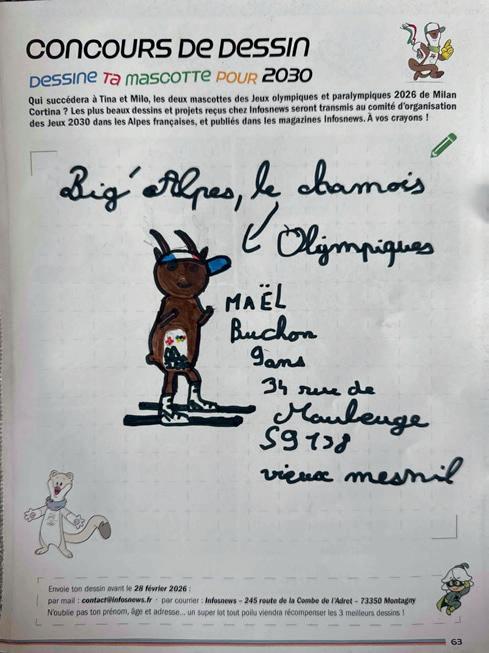 CONCOURS DE DESSIN
DESSINE TA MASCOTTE POUR 2030
Qui succédera à Tina et Milo, les deux mascottes des Jeux olympiques et paralympiques 2026 de Milan
Cortina ? Les plus beaux dessins et projets reçus chez Infosnews seront transmis au comité d'organisation
des Jeux 2030 dans les Alpes françaises, et publiés dans les magazines Infosnews. À vos crayons !
Big' Alpes, le chamois
Olympiques
MAËL
Buchon
9ans
34 rue de
Maubeuge
59138
vieux mesnil
Envoie ton dessin avant le 28 février 2026 :
par mail : contact@infosnews.fr - par courrier : Infosnews – 245 route de la Combe de l'Adret – 73350 Montagny
N'oublie pas ton prénom, âge et adresse... un super lot tout poilu viendra récompenser les 3 meilleurs dessins !
63